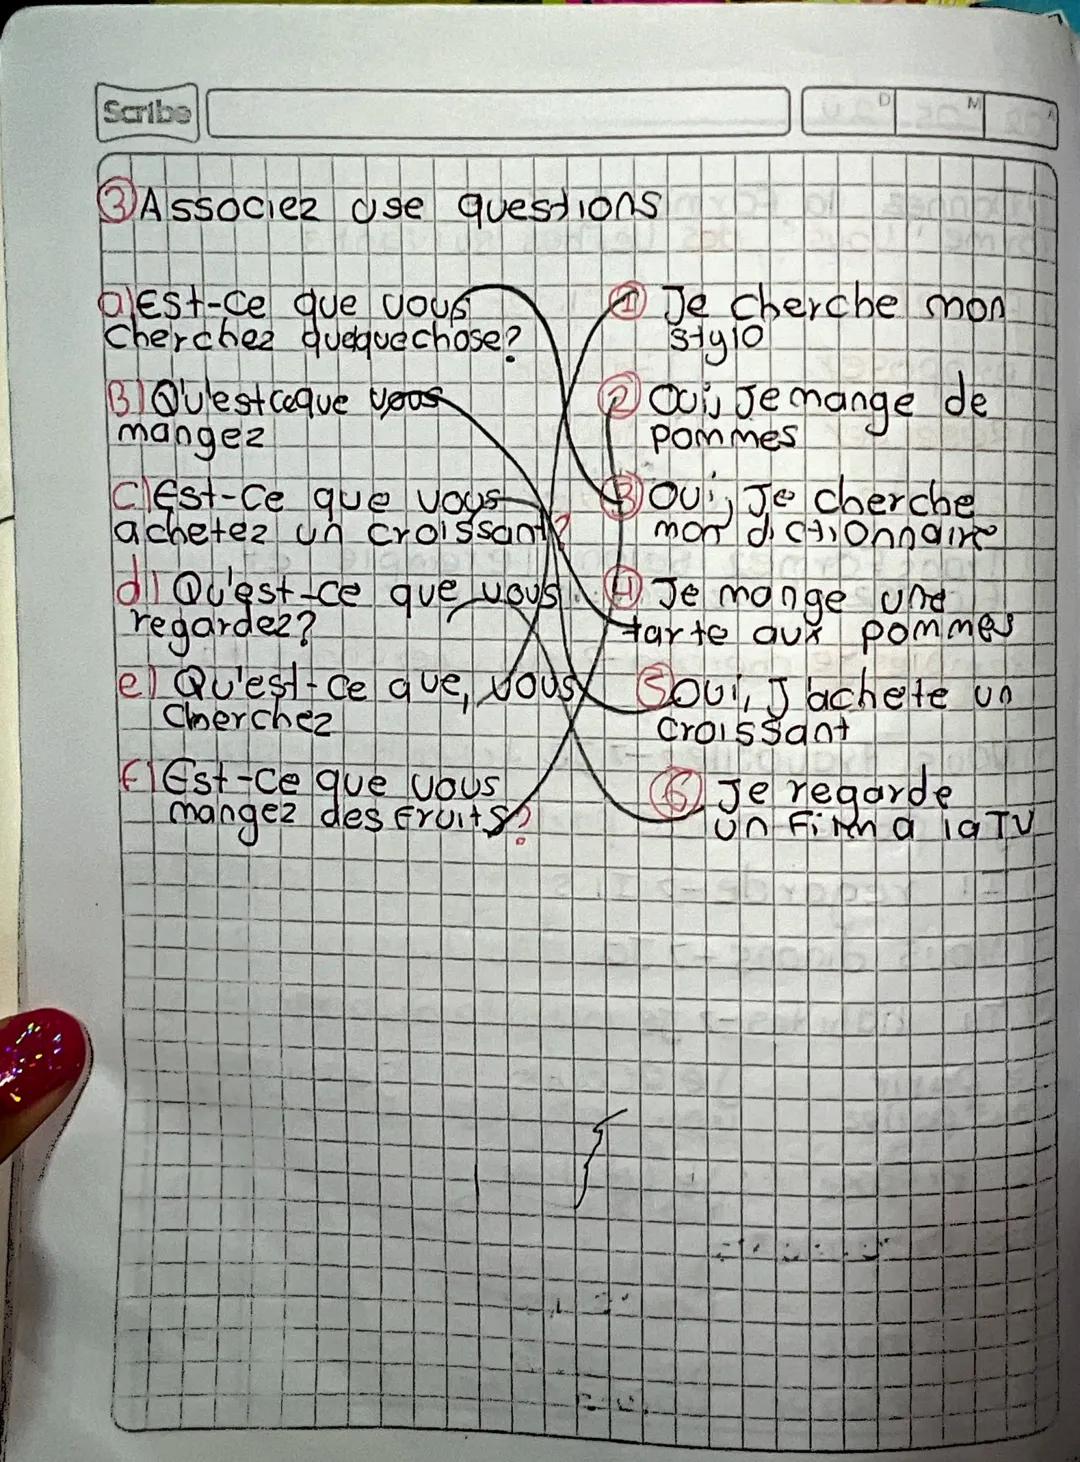 Scribe
D M A
3 Associez use questions
a) Est-ce que vous
cherchez quequechose?
1 Je cherche mon
stylo
B) Qu'estceque vous
mangez
2 Oui, Je mange de
pommes
c) Est-ce que vous
achetez un croissant?
3 Oui, Je cherche
mon dictionnaire
d) Qu'est-ce que vous
regardez?
4 Je mange une
tarte aux pommes
e) Qu'est-ce que, vous
cherchez
5 Oui, J'achete un
croissant
f) Est-ce que vous
mangez des fruits?
6 Je regarde
un a la TV